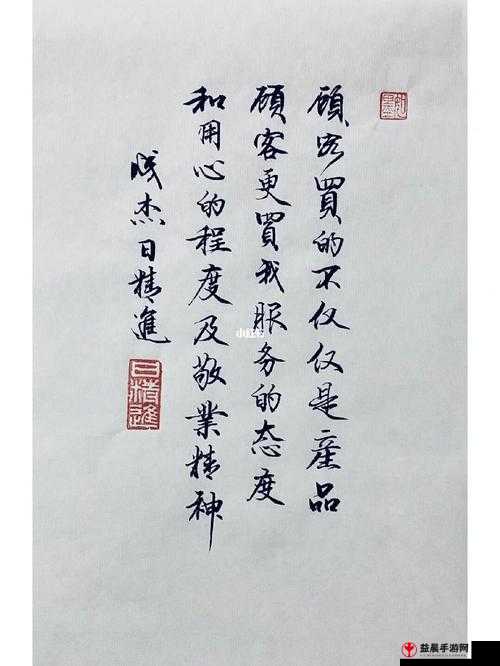 顧客買的不仅仅是産品
顧客更買我服务的态度
和用心的程度及敬業精神
成杰日精進
日精進
小红书
益晨手游网